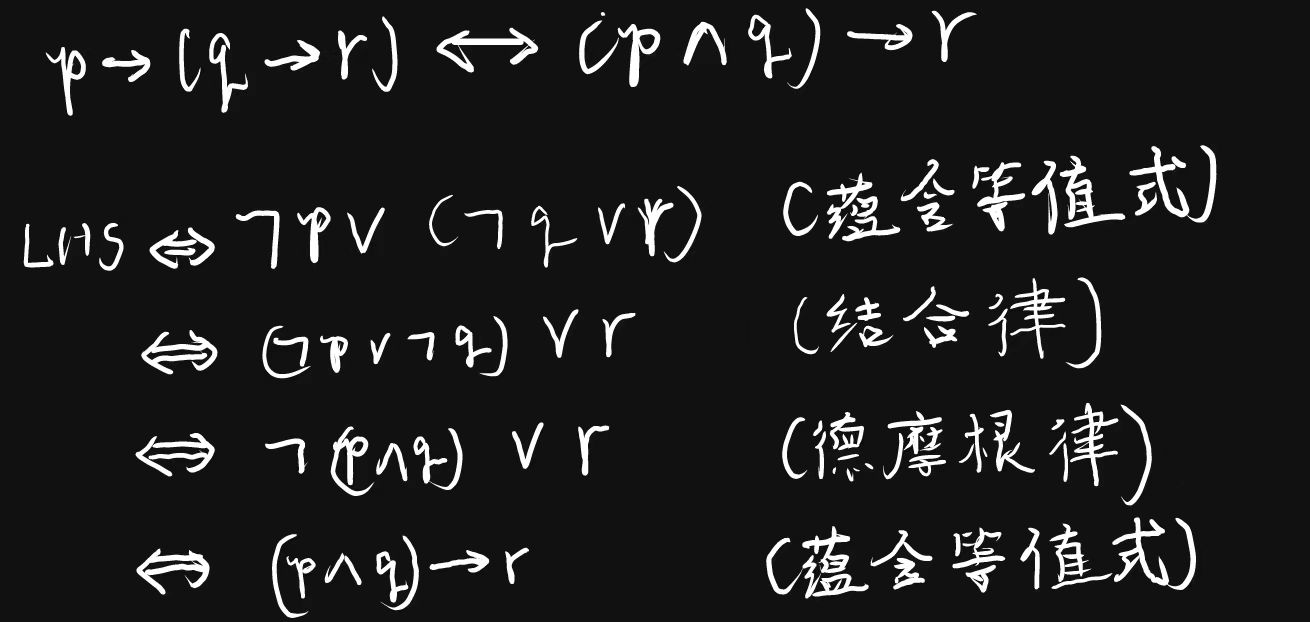 p→(q→r) ⟺ (p∧q)→r
LHS ⇔ ¬p∨ (¬q∨r) (蕴含等值式)
⇔ (¬p∨¬q) ∨ r (结合律)
⇔ ¬(p∧q) ∨ r (德摩根律)
⇔ (p∧q)→r (蕴含等值式)